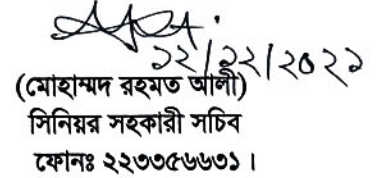 ১২/১২/২০২১
(মোহাম্মদ রহমত আলী)
সিনিয়র সহকারী সচিব
ফোনঃ ২২৩৩৫৬৬৩১।